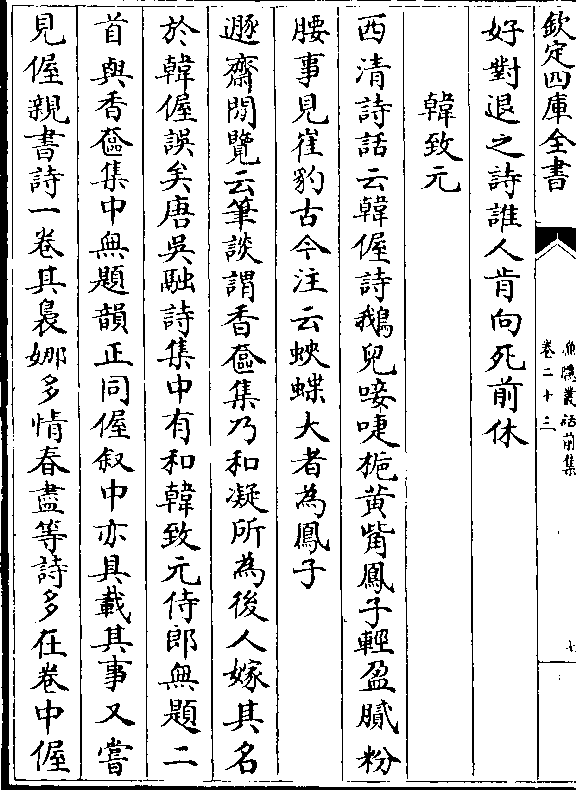 欽定四庫全書
漁隱叢話前集
卷二十三
七
好對退之詩誰人肯向死前休
韓致元
西清詩話云韓偓詩鵝兒唼啑梔黃觜鳳子輕盈膩粉
腰事見崔豹古今注云蛺蝶大者為鳳子
遯齋閒覽云筆談謂香奩集乃和凝所為後人嫁其名
於韓偓誤矣唐吳融詩集中有和韓致元侍郎無題二
首與香奩集中無題韻正同偓叙中亦具載其事又嘗
見偓親書詩一卷其裊娜多情春盡等詩多在卷中偓